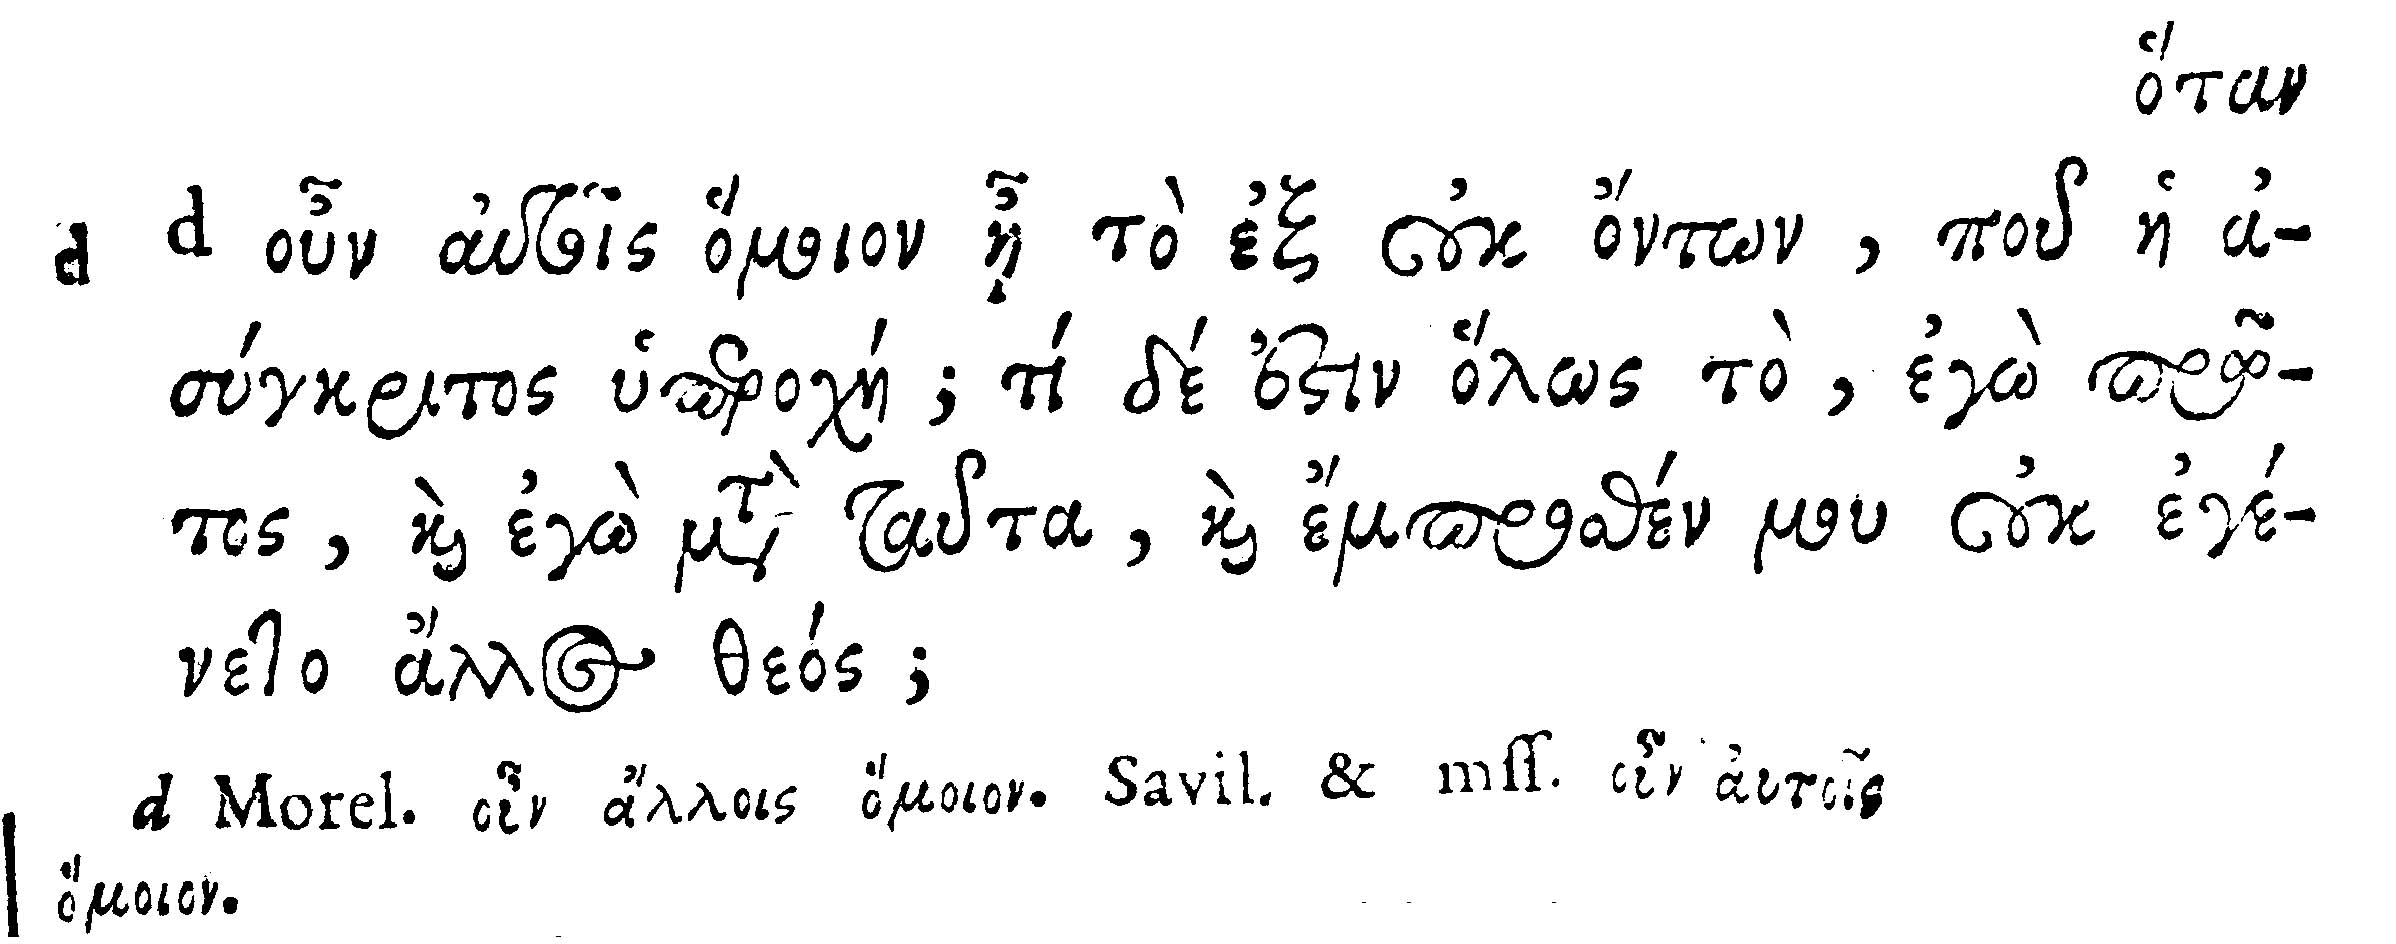 ὅταν
d d οὖν αὐτοῖς ὅμοιον ᾖ τὸ ἐξ οὐκ ὄντων, ποῦ ἡ ἀ-
σύγκριτος ὑπεροχή; τί δέ ἐστιν ὅλως τὸ, ἐγὼ πρῶ-
τος, καὶ ἐγὼ μετὰ ταῦτα, καὶ ἔμπροσθέν μου οὐκ ἐγέ-
νετο ἄλλος θεός;
d Morel. οὖν ἄλλοις ὅμοιον. Savil. & mſſ. οὖν αὐτοῖς
ὅμοιον.